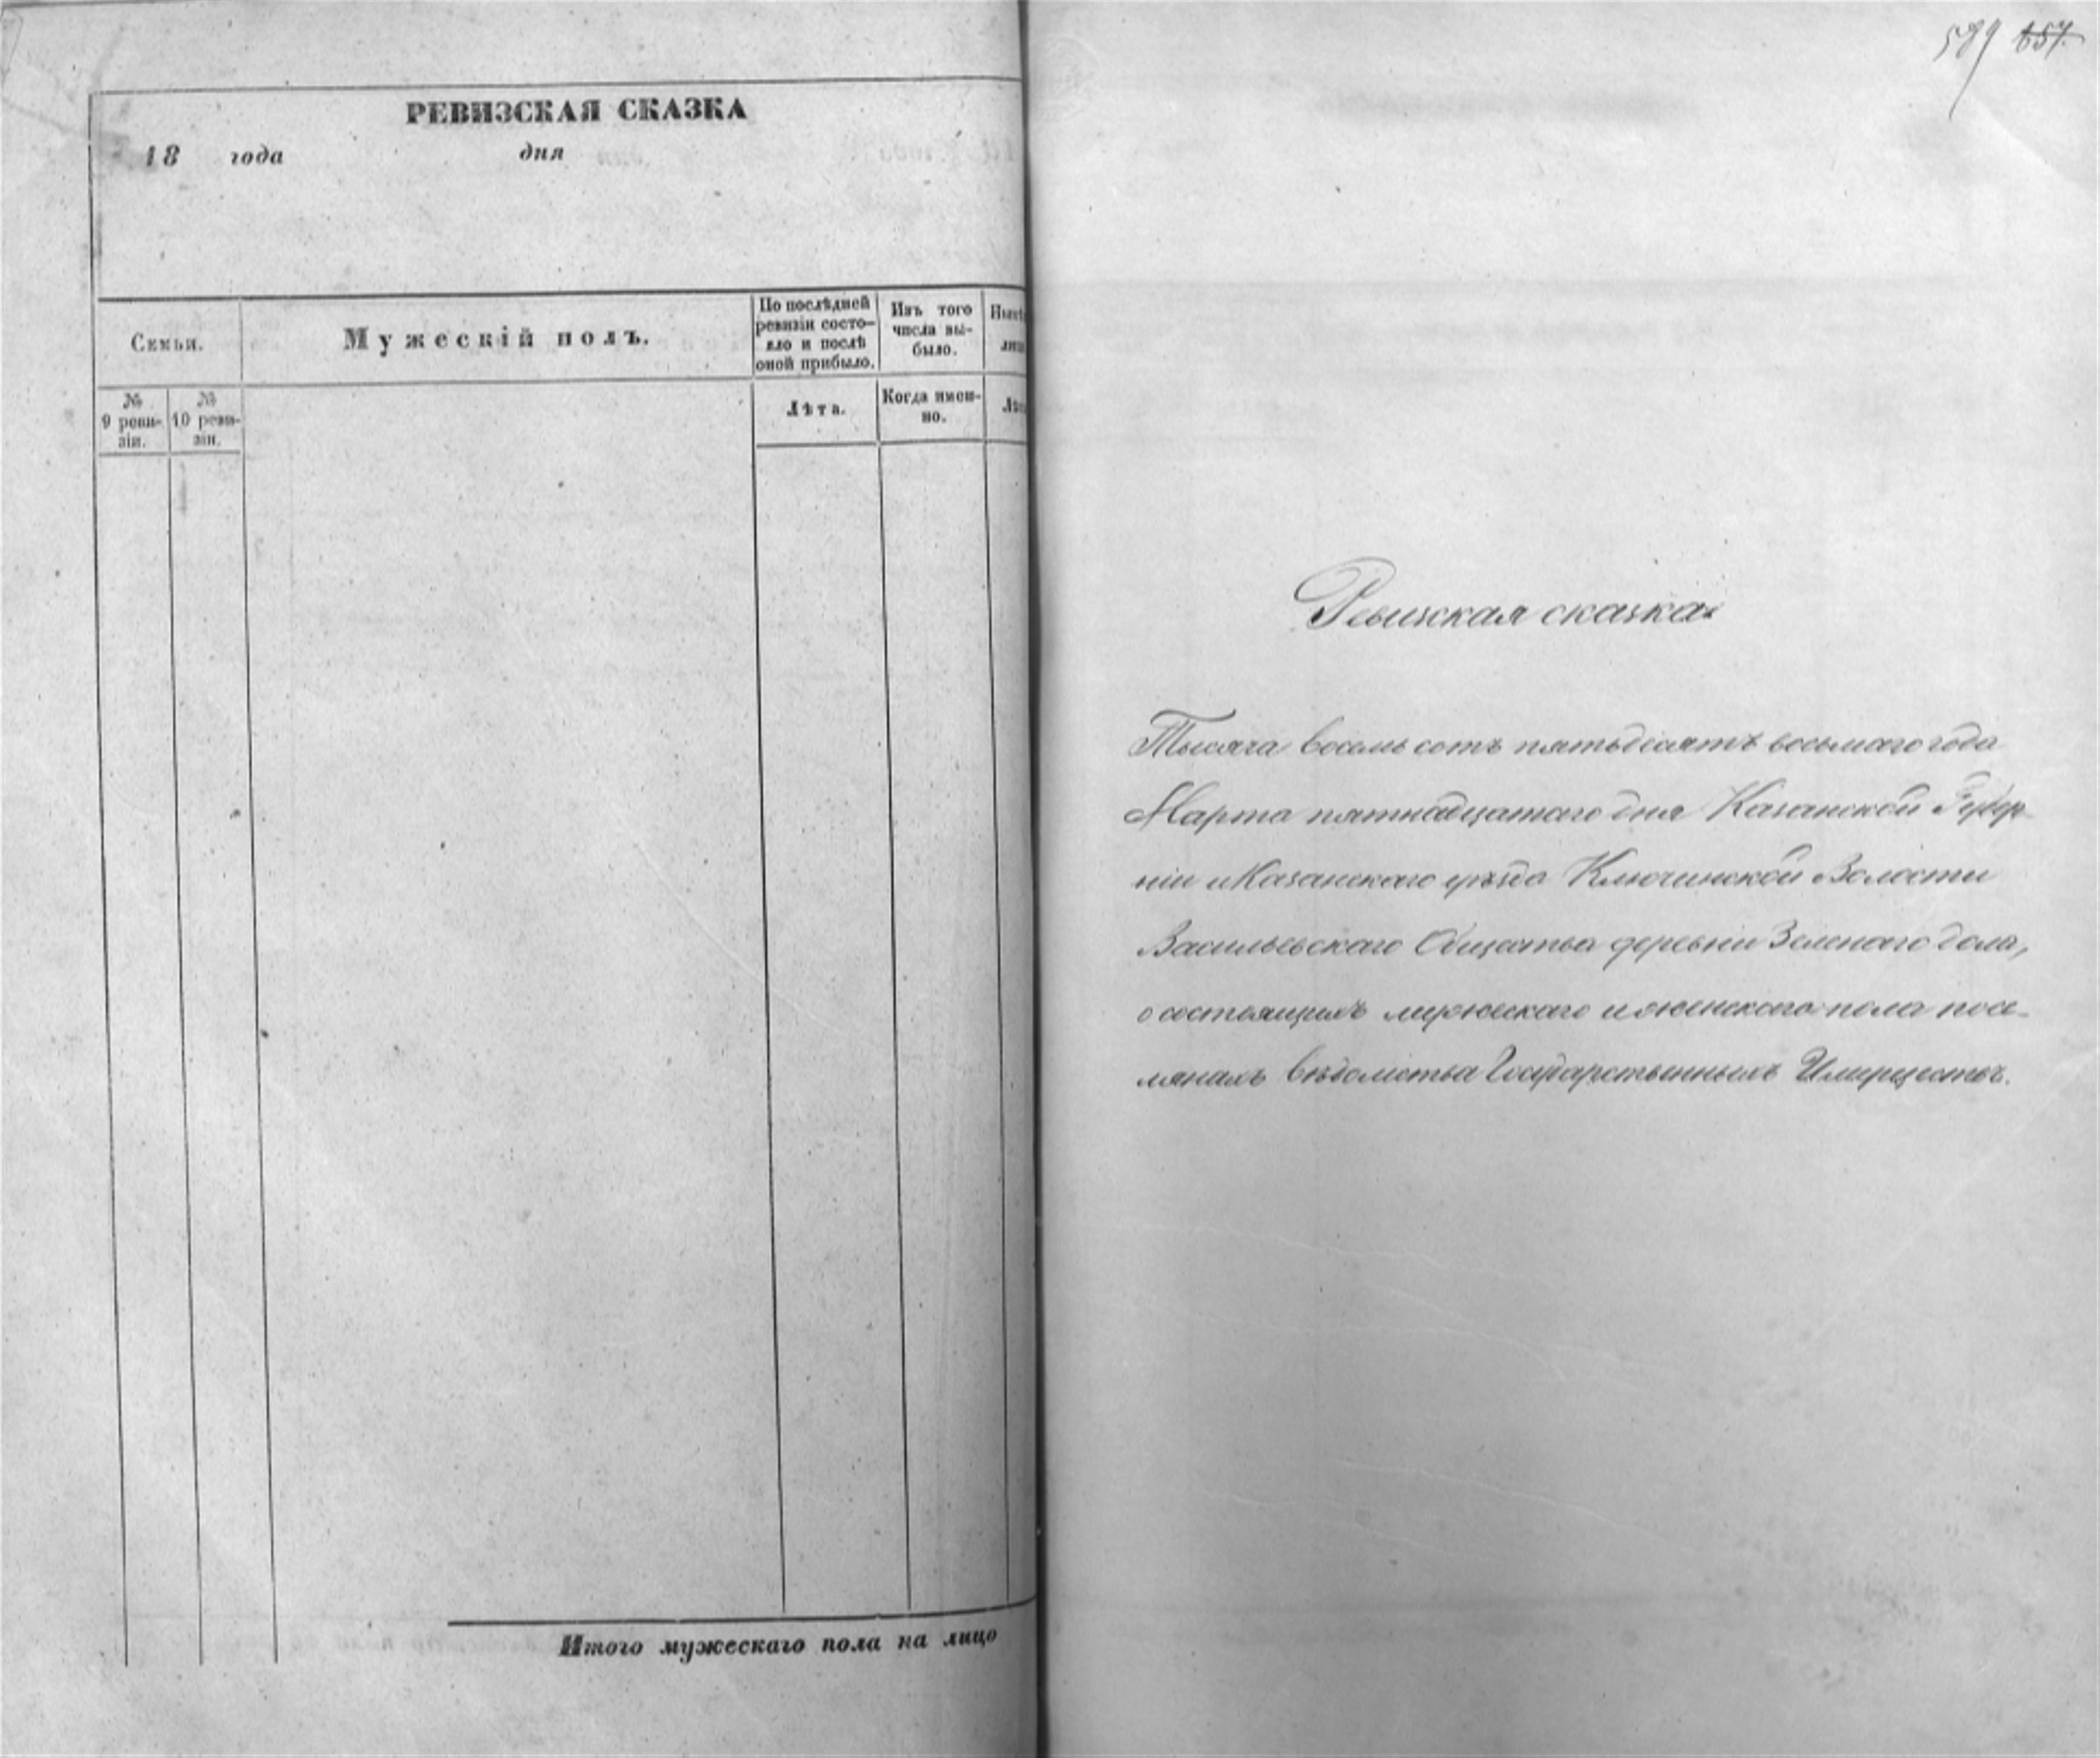 РЕВИЗСКАЯ СКАЗКА
18 года дня
Семьи.
Мужескій полъ.
По послѣдней
ревизіи состо-
яло и послѣ
оной прибыло.
Изъ того
числа вы-
было.
№
9 реви-
зіи.
№
10 реви-
зіи.
Лѣта.
Когда имен-
но.
Итого мужескаго пола на лицо
589 657.
Ревизская сказка
Тысяча восемь сотъ пятьдесятъ восьмаго года
Марта пятнадцатаго дня Казанской Губер
ніи и Казанскаго уѣзда Ключинской Волости
Васильевскаго Общества деревни Зеленаго дола,
о состоящихъ мужескаго и женскаго пола посе-
лянахъ вѣдомства Государственныхъ Имуществъ.